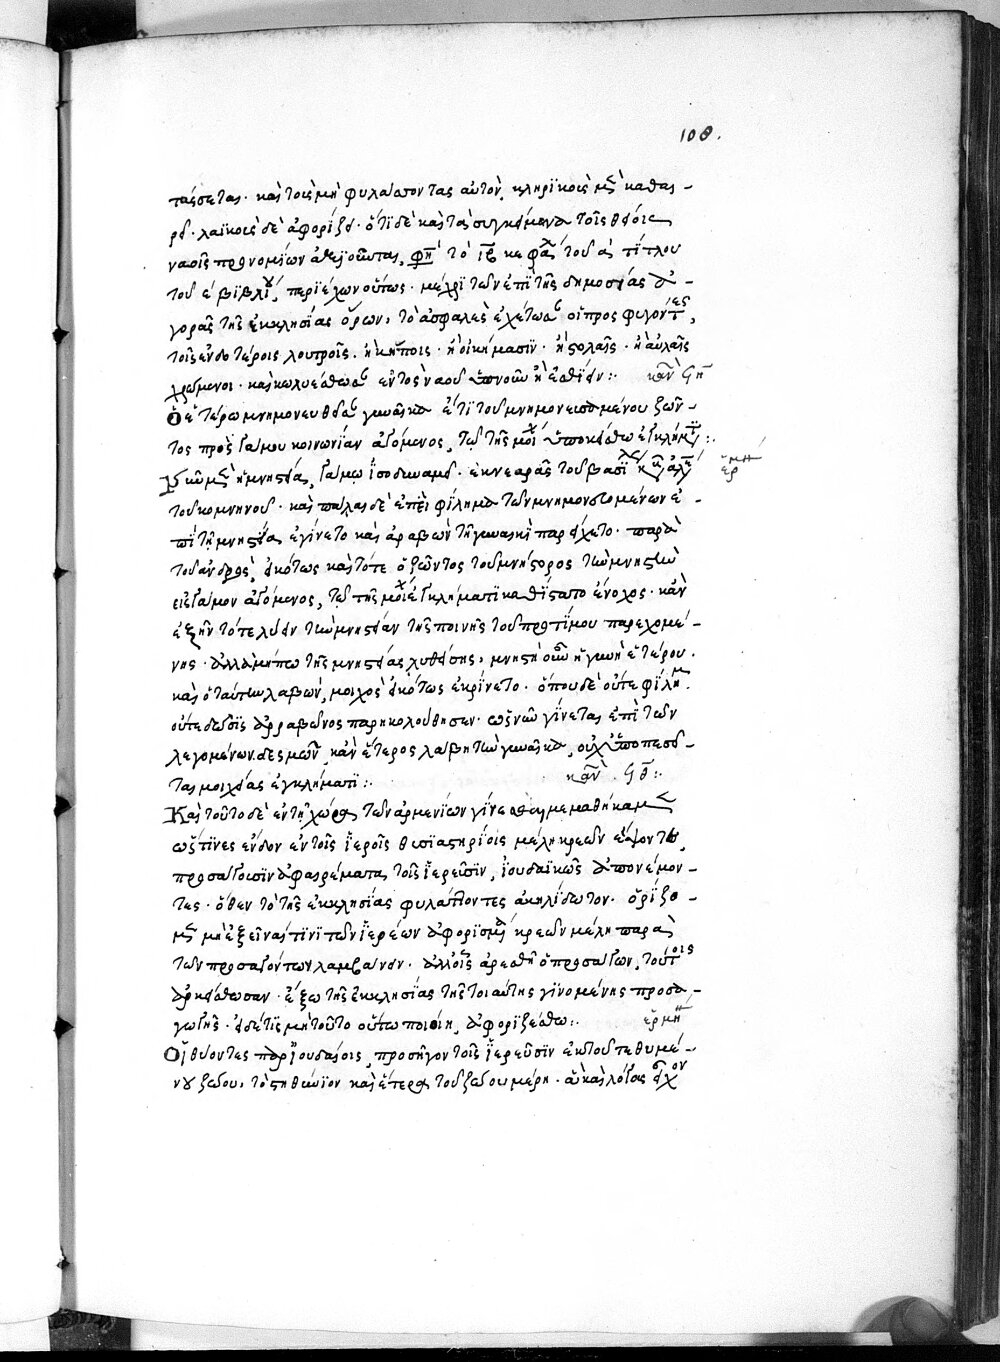 108.
τάσσεται· καὶ τοῖς μὴ φυλάττοντας αὐτὸν, κληρϊκοὺς μὲν καθαι-
ρεῖ· λαϊκοὺς δὲ ἀφορίζει· ὅτι δὲ καὶ τὰ συγκείμενα τοῖς θείοις
ναοῖς προνομίων ἀξιοῦνται, φησὶ τὸ ιβ κεφάλαιον τοῦ α τίτλου
τοῦ ε βιβλίου, περιέχων οὕτως· μέχρι τῶν ἐπὶ τῆς δημοσίας ἀ-
γορᾶς τῆς ἐκκλησίας ὅρων, τὸ ἀσφαλὲς ἐχέτωσαν οἱ προσφυγόντες,
τοῖς ἐνδοτέροις λουτροῖς· ἢ κήποις· ἢ οἰκήμασιν· ἢ στοαῖς· ἢ αὐλαῖς
χρώμενοι· καὶ κωλυέσθωσαν ἐντὸς ναοῦ ὑπνοῦν ἢ ἐσθίειν: κανὼν ϟη
Ὁ ἑτέρῳ μνηστευθεῖσαν γυναῖκα ἔτι τοῦ μνηστευσαμένου ζῶν-
τος πρὸς γάμου κοινωνίαν ἀγόμενος, τῷ τῆς μοιχείας ὑποκείσθω ἐγκλήματι:
ἑρμη
Καὶ νῦν μὲν ἡ μνηστεία, γάμῳ ἰσοδυναμεῖ· ἐκ νεαρᾶς τοῦ βασιλέως κυροῦ ἀλεξίου
τοῦ κομνηνοῦ· καὶ πάλαι δὲ ἐπεὶ φίλημα τῶν μνηστευομένων ἐ-
πὶ τῇ μνηστείᾳ ἐγίνετο καὶ ἀραβὼν τῇ γυναικὶ παρείχετο· παρὰ
τοῦ ἀνδρὸς, εἰκότως καὶ τότε ὁ ζῶντος τοῦ μνήστορος τὴν μνηστὴν
εἰς γάμον ἀγόμενος, τῷ τῆς μοιχείας ἐγκλήματι καθίστατο ἔνοχος· κἂν
ἐξῆν τότε λύειν τὴν μνηστείαν τῆς ποινῆς τοῦ προστίμου παρεχομέ-
νης· ἀλλὰ μήπω τῆς μνηστείας λυθείσης, μνηστὴ οὖν ἡ γυνὴ ἑτέρου·
καὶ ὁ ταύτην λαβών, μοιχὸς εἰκότως ἐκρίνετο· ὅπου δὲ οὔτε φίλημα·
οὔτε δόσις ἀρραβῶνος παρηκολούθησεν· ὡς νῦν γίνεται ἐπὶ τῶν
λεγομένων δεσμῶν, κἂν ἕτερος λάβῃ τὴν γυναῖκα, οὐχ ὑποπεσεῖ-
ται μοιχείας ἐγκλήματι: κανὼν ϟθ:
Καὶ τοῦτο δὲ ἐν τῇ χώρᾳ τῶν ἀρμενίων γίνεσθαι μεμαθήκαμεν
ὥς τινες ἔνδον ἐν τοῖς ἱεροῖς θυσιαστηρίοις μέλη κρεῶν ἕψοντες,
προσάγουσιν ἀφαιρέματα τοῖς ἱερεῦσιν, ἰουδαϊκῶς ἀπονέμον-
τες· ὅθεν τὸ τῆς ἐκκλησίας φυλάττοντες ἀκηλίδωτον· ὁρίζο-
μεν μὴ ἐξεῖναί τινι τῶν ἱερέων ἀφορισμένα κρεῶν μέλη παρὰ
τῶν προσαγόντων λαμβάνειν· ἀλλ' οἷς ἀρεσθῇ ὁ προσάγων, τούτοις
ἀρκείσθωσαν· ἔξω τῆς ἐκκλησίας τῆς τοιαύτης γινομένης προσα-
γωγῆς· εἰ δέ τις μὴ τοῦτο οὕτω ποιοίη, ἀφοριζέσθω: ἑρμη
Οἱ θύοντες παρ' ἰουδαίοις, προσῆγον τοῖς ἱερεῦσιν ἐκ τοῦ τεθυμέ-
νου ζώου, τὸ στηθύνιον καὶ ἕτερα τοῦ ζώου μέρη· ἃ καὶ λόγους εἶχον